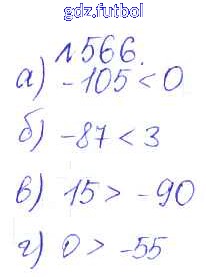 gdz.futbol
№566.
а) -105 < 0
б) -87 < 3
в) 15 > -90
г) 0 > -55